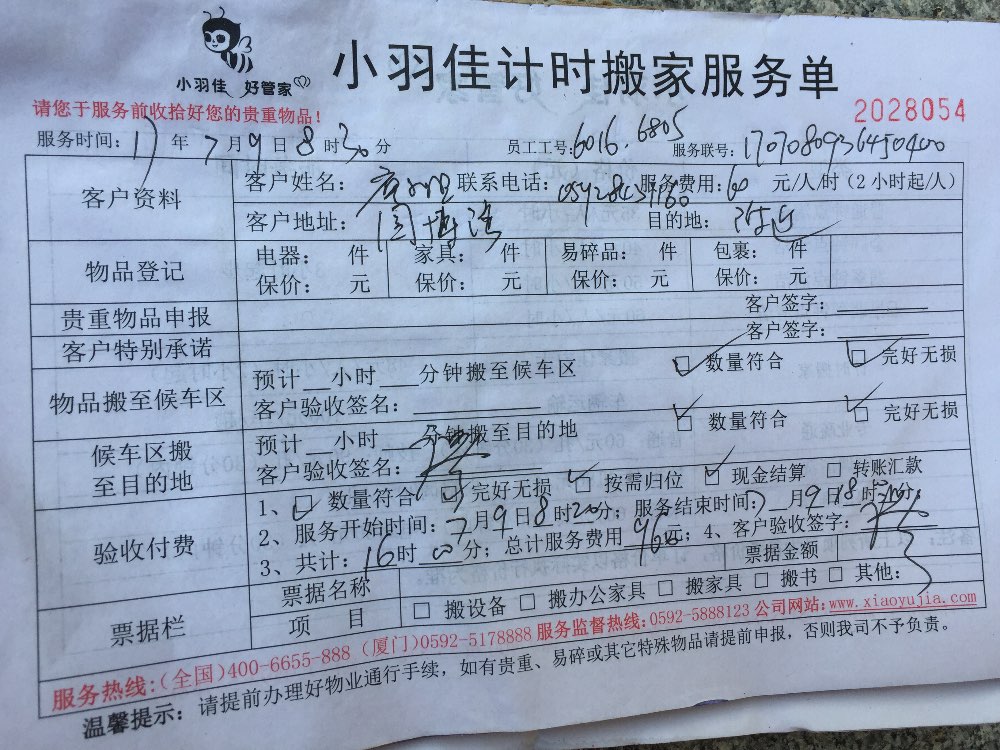 小羽佳 好管家
小羽佳计时搬家服务单
请您于服务前收拾好您的贵重物品!
2028054
服务时间: 17 年 7 月 9 日 8 时 30 分 员工工号: 6016.6805 服务联号: 1707080936450400
客户资料
客户姓名: 联系电话: 服务费用: 60 元/人/时(2小时起/人)
客户地址: 目的地: 附近
物品登记
电器: 件 家具: 件 易碎品: 件 包裹: 件
保价: 元 保价: 元 保价: 元 保价: 元
贵重物品申报 客户签字:
客户特别承诺 客户签字:
物品搬至候车区
预计__小时___分钟搬至候车区 数量符合 完好无损
客户验收签名:
候车区搬至目的地
预计__小时___分钟搬至目的地 数量符合 完好无损
客户验收签名:
验收付费
1、 数量符合 完好无损 按需归位 现金结算 转账汇款
2、服务开始时间: 7月9日8时 分; 服务结束时间: 7月9日18时 分;
3、共计: 16时00分; 总计服务费用 960元; 4、客户验收签字:
票据栏
票据名称 票据金额
项 目 搬设备 搬办公家具 搬家具 搬书 其他:
服务热线:(全国)400-6655-888 (厦门)0592-5178888 服务监督热线:0592-5888123 公司网站:www.xiaoyujia.com
温馨提示: 请提前办理好物业通行手续,如有贵重、易碎或其它特殊物品请提前申报,否则我司不予负责。